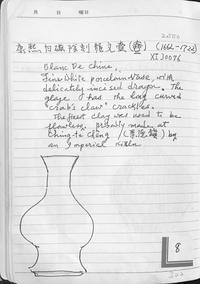 月 日 曜日
康熙 白磁 (1662-1722)
XIJ0076
Blanc De Chine,
Fine White porcelain Vase, with
delicately incised dragon. The
glaze has the long curved
"crab's claw" crackles.
The finest clay was used to be
flawless. Probably made at
Ching-te Chêng / (景德鎮) by
an Imperial kiln
8